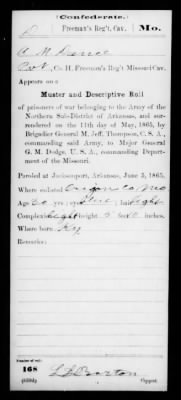 (Confederate.)
D Freeman's Reg't, Cav. Mo.
A M Dance
Co. H, Freeman's Reg't Missouri Cav.
Appears on a
Muster and Descriptive Roll
of prisoners of war belonging to the Army of the
Northern Sub-District of Arkansas, and sur-
rendered on the 11th day of May, 1865, by
Brigadier General M. Jeff. Thompson, C. S. A.,
commanding said Army, to Major General
G. M. Dodge, U. S. A., commanding Department
of the Missouri.
Paroled at Jacksonport, Arkansas, June 5, 1865.
Where enlisted Oregon Co, Mo
Age yrs; eyes Blue; hair light
Complexion light; height 5 feet inches.
Where born Ky
Remarks:
Number of roll:
168
(639b)
Copyist.